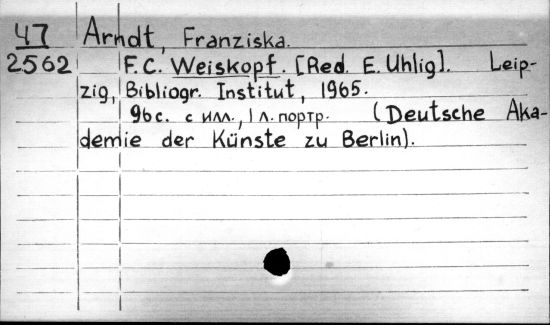 47 Arndt, Franziska.
2562 F.C. Weiskopf. [Red. E. Uhlig]. Leip-
zig, Bibliogr. Institut, 1965.
96 с. с илл., 1 л. портр. (Deutsche Aka-
demie der Künste zu Berlin).